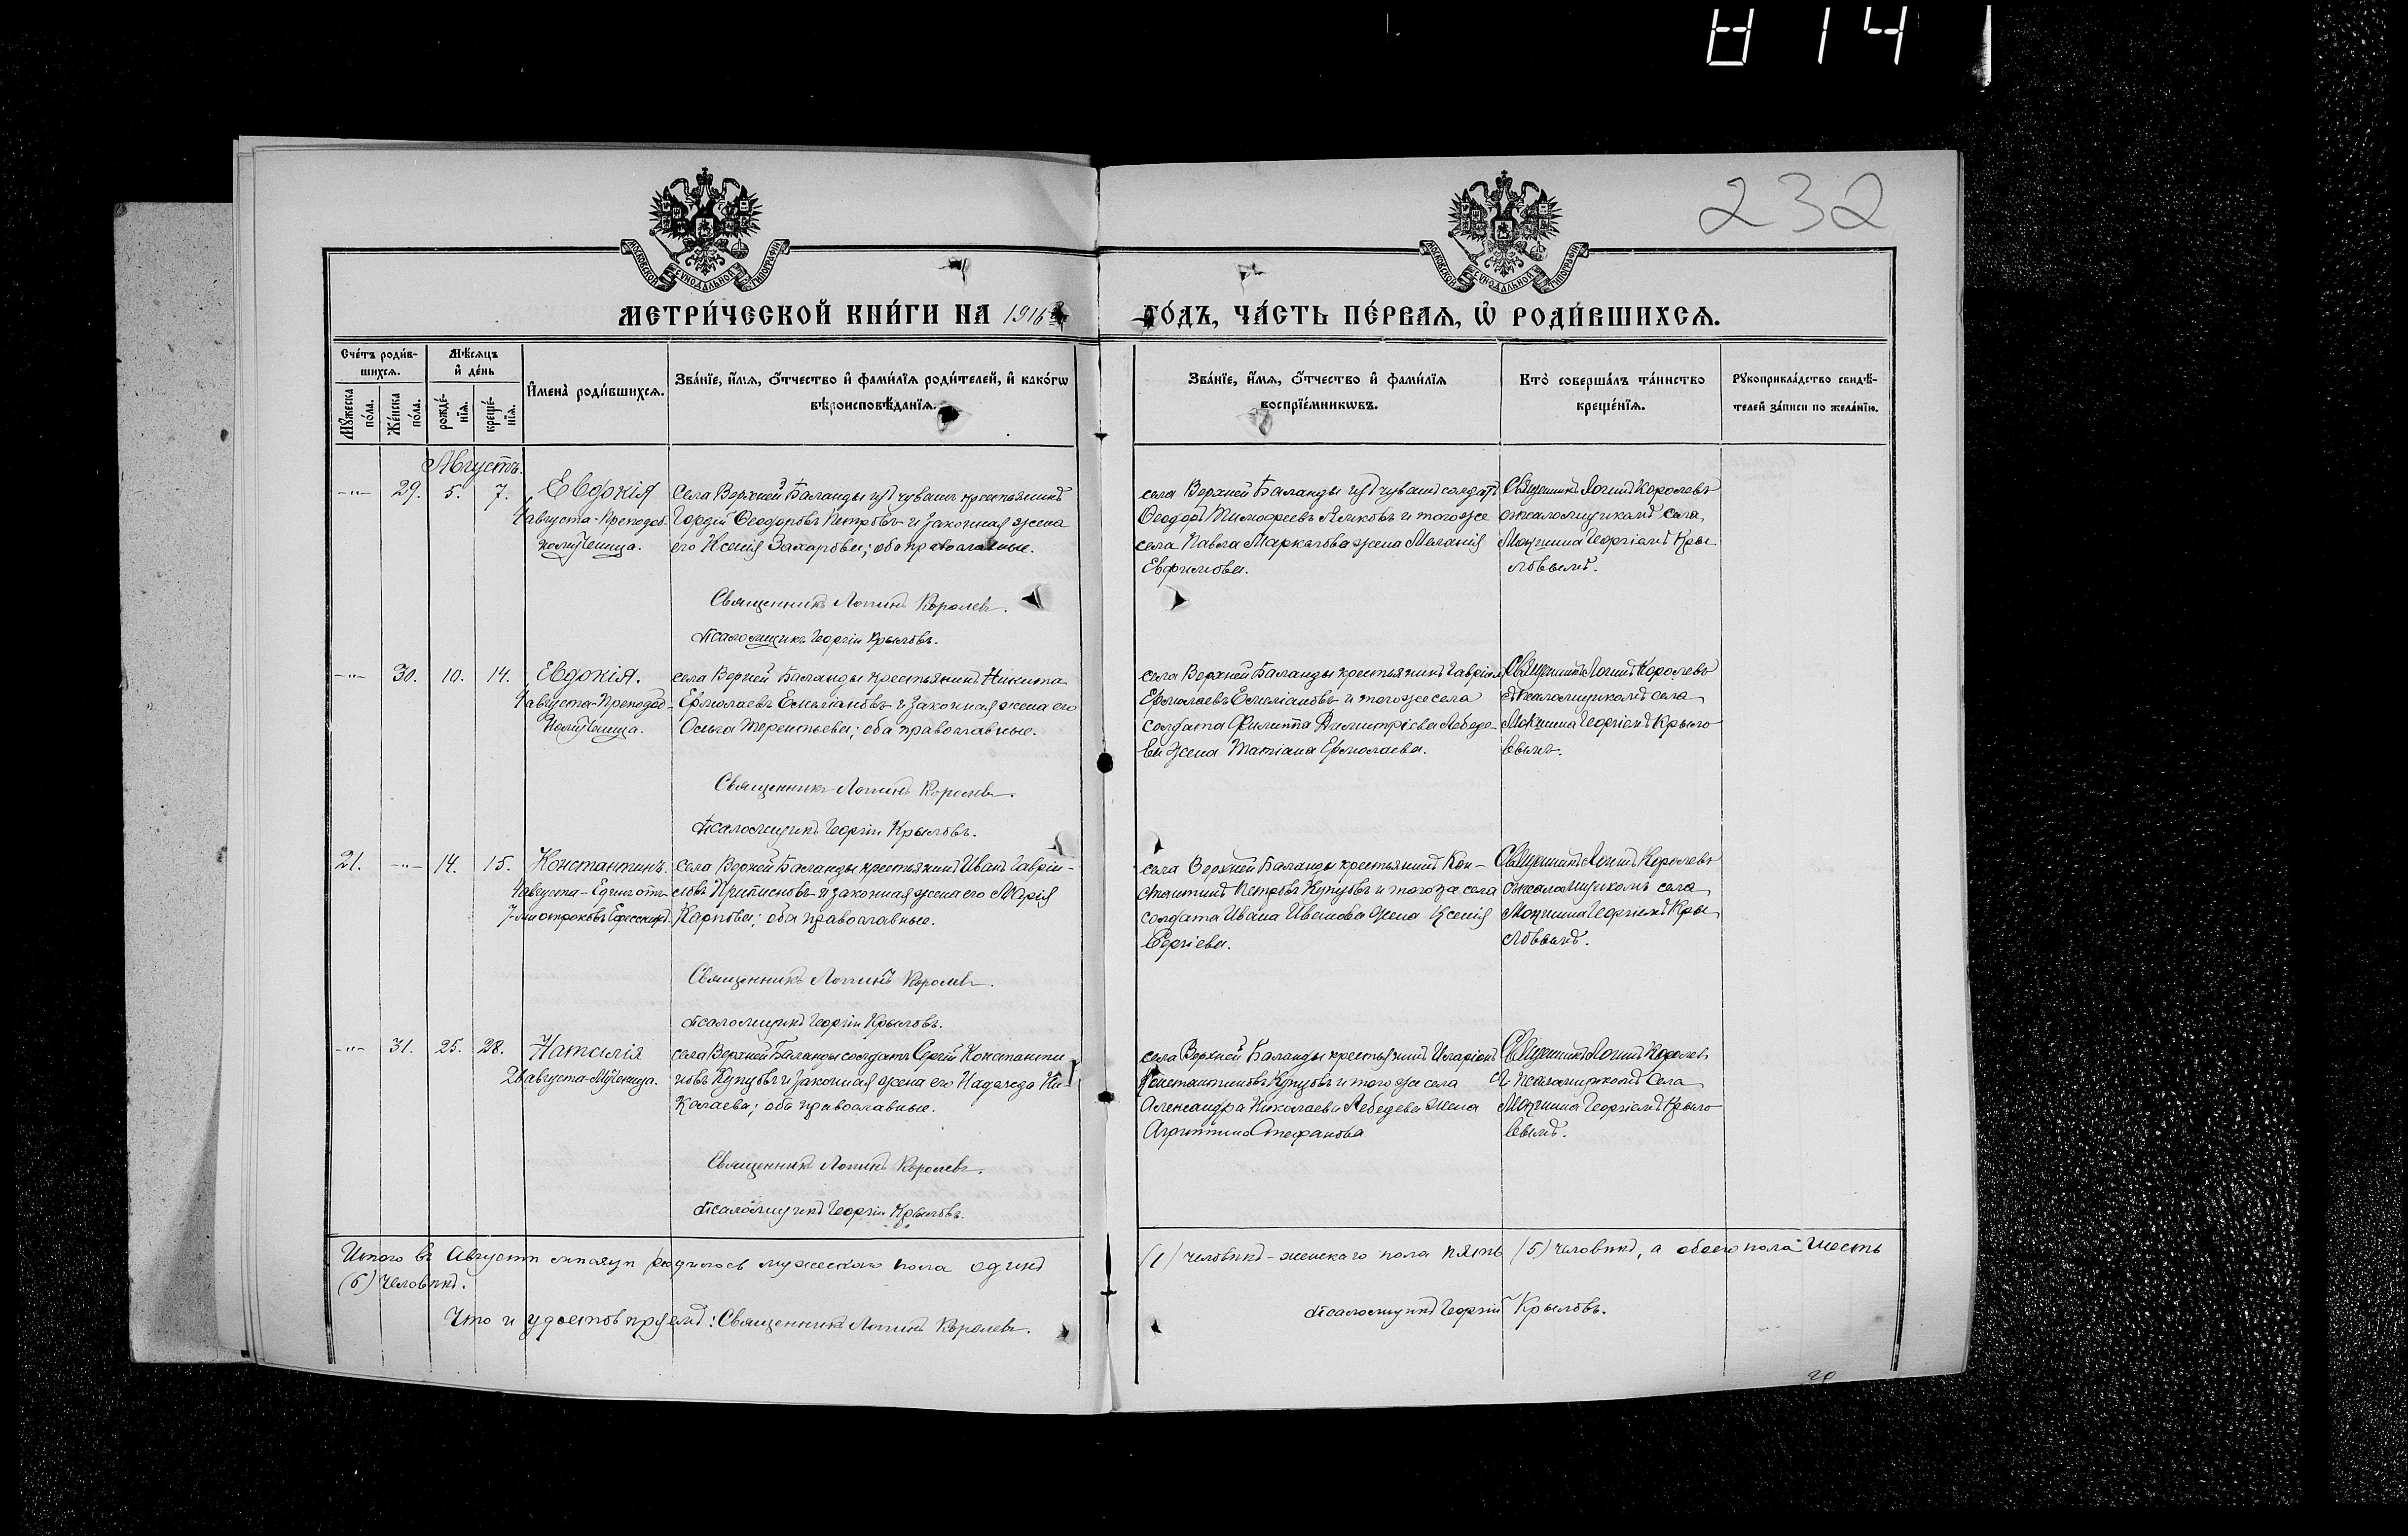 814
232
МОСКОВСКОЙ СУНОДАЛЬНОЙ ТИПОГРАФІИ
МОСКОВСКОЙ СУНОДАЛЬНОЙ ТИПОГРАФІИ
МЕТРИ́ЧЕСКОЙ КНИ́ГИ НА 1916й ГО́ДЪ, ЧА́СТЬ ПЕ́РВАѦ, Ѡ҆ РОДИ́ВШИХСѦ.
Сче́тъ роди́в-
шихсѧ.
Мѣ́сѧцъ
и҆ де́нь
Мꙋ́жеска
по́ла.
Же́нска
по́ла.
рожде́-
нїѧ.
креще́-
нїѧ.
И҆мена̀ роди́вшихсѧ.
Зва́нїе, и҆́мѧ, ѻ҆́тчество и҆ фами́лїѧ роди́телей, и҆ како́гѡ
вѣроисповѣ́данїѧ.
Зва́нїе, и҆́мѧ, ѻ҆́тчество и҆ фами́лїѧ
воспрїе́мникѡвъ.
Кто̀ соверша́лъ та́инство
креще́нїѧ.
Рꙋкоприкла́дство свидѣ́-
телей за́писи по жела́нїю.
Августъ.
-"- 29. 5. 7. Евдокія
4 августа-Преподоб-
номученица.
Села Верхней Баланды изъ чувашъ крестьянинъ
Гордій Ѳеодоровъ Петровъ и законная жена
его Ксенія Захарова; оба православные.
Священникъ Логинъ Королевъ.
Псаломщикъ Георгій Крыловъ.
села Верхней Баланды изъ чувашъ солдатъ
Ѳеодоръ Тимофеевъ и того же
села Павла Маркелова жена Меланія
Евфимова.
Священникъ Логинъ Королевъ
съ псаломщикомъ села
Мокшина Георгіемъ Кры-
ловымъ.
-"- 30. 10. 14. Евдокія.
4 августа-Преподоб-
номученица.
села Верхней Баланды крестьянинъ Никита
Ермолаевъ Емельяновъ и законная жена его
Ольга Терентьева; оба православные.
Священникъ Логинъ Королевъ.
Псаломщикъ Георгій Крыловъ.
села Верхней Баланды крестьянинъ Гавріилъ
Ермолаевъ Емеліановъ и того же села
солдата Филиппа Димитріева Лебеде-
ва жена Татіана Ермолаева.
Священникъ Логинъ Королевъ
съ псаломщикомъ села
Мокшина Георгіемъ Крыло-
вымъ.
21. -"- 14. 15. Константинъ.
4 августа-Единъ отъ
7-ми отроковъ Ефесскихъ.
села Верхней Баланды крестьянинъ Иванъ Гаврі-
ловъ и законная жена его Марія
Карпова; оба православные.
Священникъ Логинъ Королевъ.
Псаломщикъ Георгій Крыловъ.
села Верхней Баланды крестьянинъ Кон-
стантинъ Петровъ Купцовъ и того же села
солдата Ивана Иванова жена Ксенія
Сергіева.
Священникъ Логинъ Королевъ
съ псаломщикомъ села
Мокшина Георгіемъ Кры-
ловымъ.
-"- 31. 25. 28. Наталія
26 августа-Мученица.
села Верхней Баланды солдатъ Сергій Константи-
новъ Купцовъ и законная жена его Надежда Ни-
колаева; оба православные.
Священникъ Логинъ Королевъ.
Псаломщикъ Георгій Крыловъ.
села Верхней Баланды крестьянинъ Иларіонъ
Константиновъ Купцовъ и того же села
Александра Николаева Лебедева жена
Агриппина Стефанова
Священникъ Логинъ Королевъ
съ псаломщикомъ села
Мокшина Георгіемъ Крыло-
вымъ.
Итого въ Августѣ мѣсяцѣ родилось мужескаго пола одинъ (1) человѣкъ - женскаго пола пять (5) человѣкъ, а обоего пола шесть
(6) человѣкъ.
Что и удостовѣряемъ: Священникъ Логинъ Королевъ. Псаломщикъ Георгій Крыловъ.